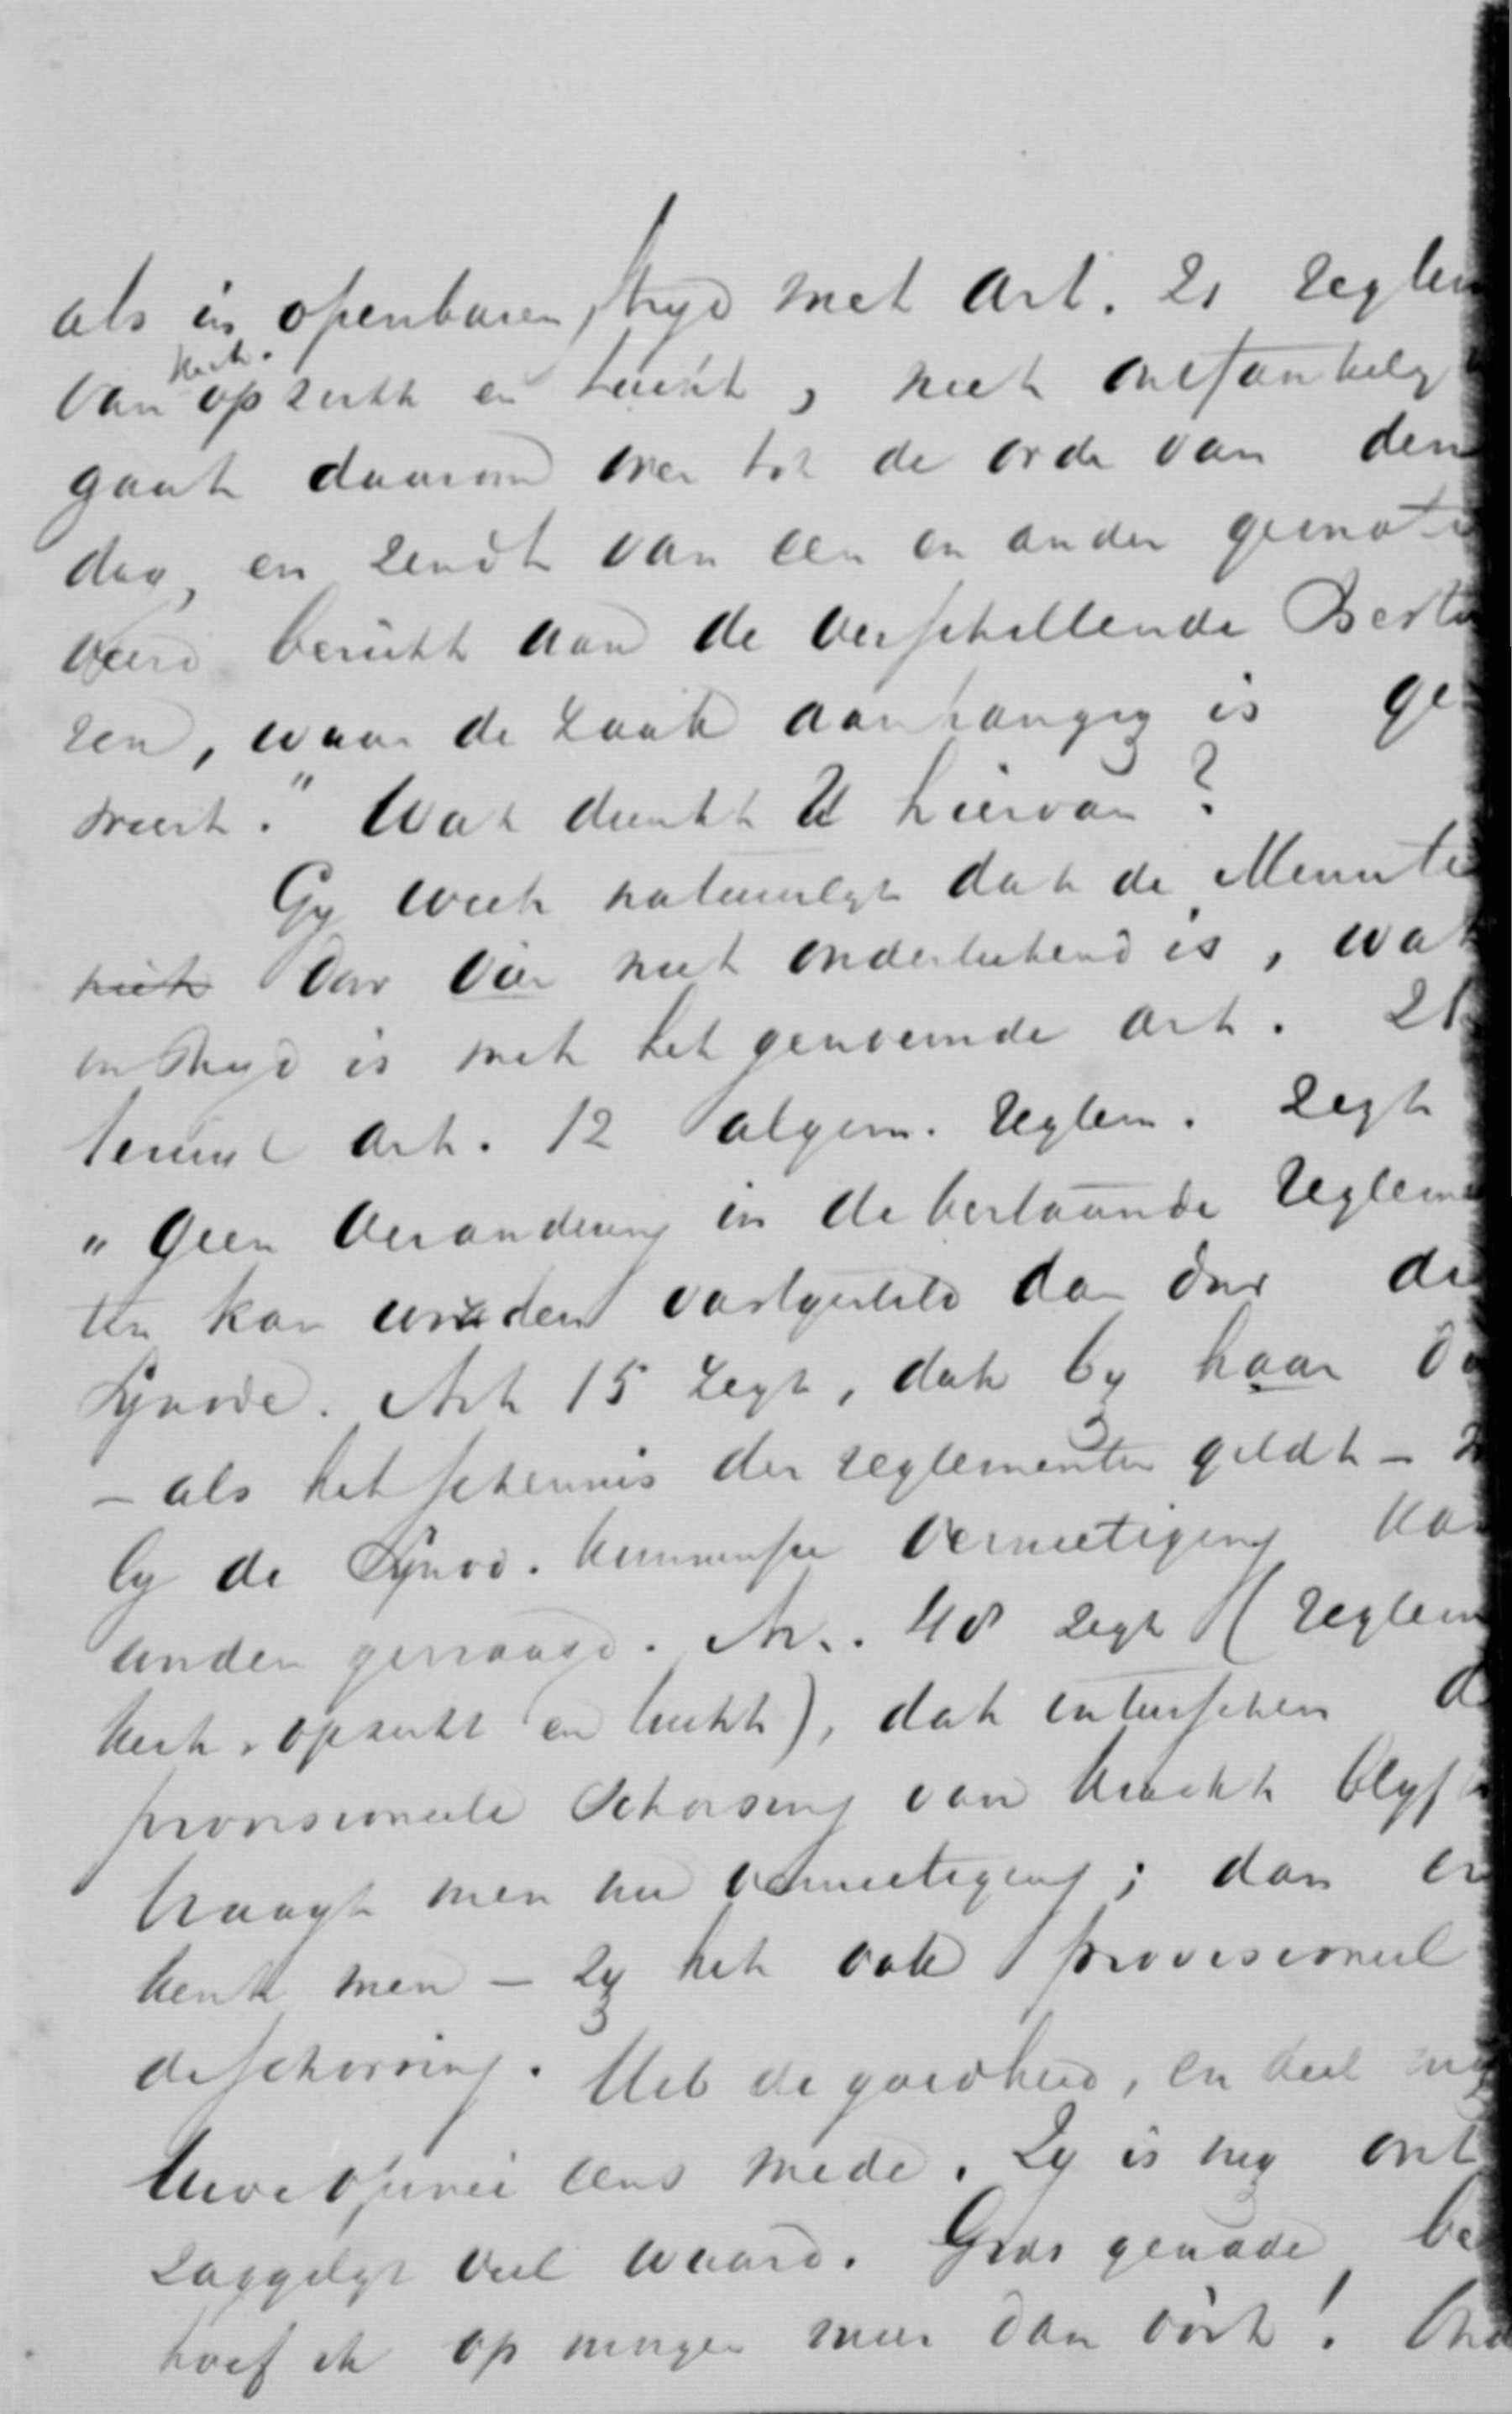 als in openbaren stryd met art. 21 reglem
van kerk. opzicht en tucht, niet ontfankelyk
gaat daarom over tot de orde van den
dag, en zendt van een en ander gemoti
veerd bericht aan de verschillende Bestu
ren, waar de zaak aanhangig is ge
weest." Wat dunkt U hiervan?
Gy weet natuurlyk dat de Minute
niet door vier niet onderteekend is, wat
in stryd is met het genoemde art. 21
terwyl art. 12 algem. reglem. zegt
"geen verandering in de bestaande reglem
ten kan worden vastgesteld dan door de
Synode. Art 15 zegt, dat by haar
- als het schennis der reglementen geldt -
by de Synod. kommissie vernietiging kan
worden gevraagd. Art. 48 zegt (reglem
kerk. opzicht en tucht), dat intusschen d
provisioneele schorsing van kracht blyft
Vraagt men nu vernietiging; dan er
kent men - zy het ook provisioneel
de schorsing. Heb de goedheid, en deel my
Uwe opinie eens mede. Zy is my ont
zaggelyk veel waard. Gods genade be
hoef ik op mengen meer dan ooit!